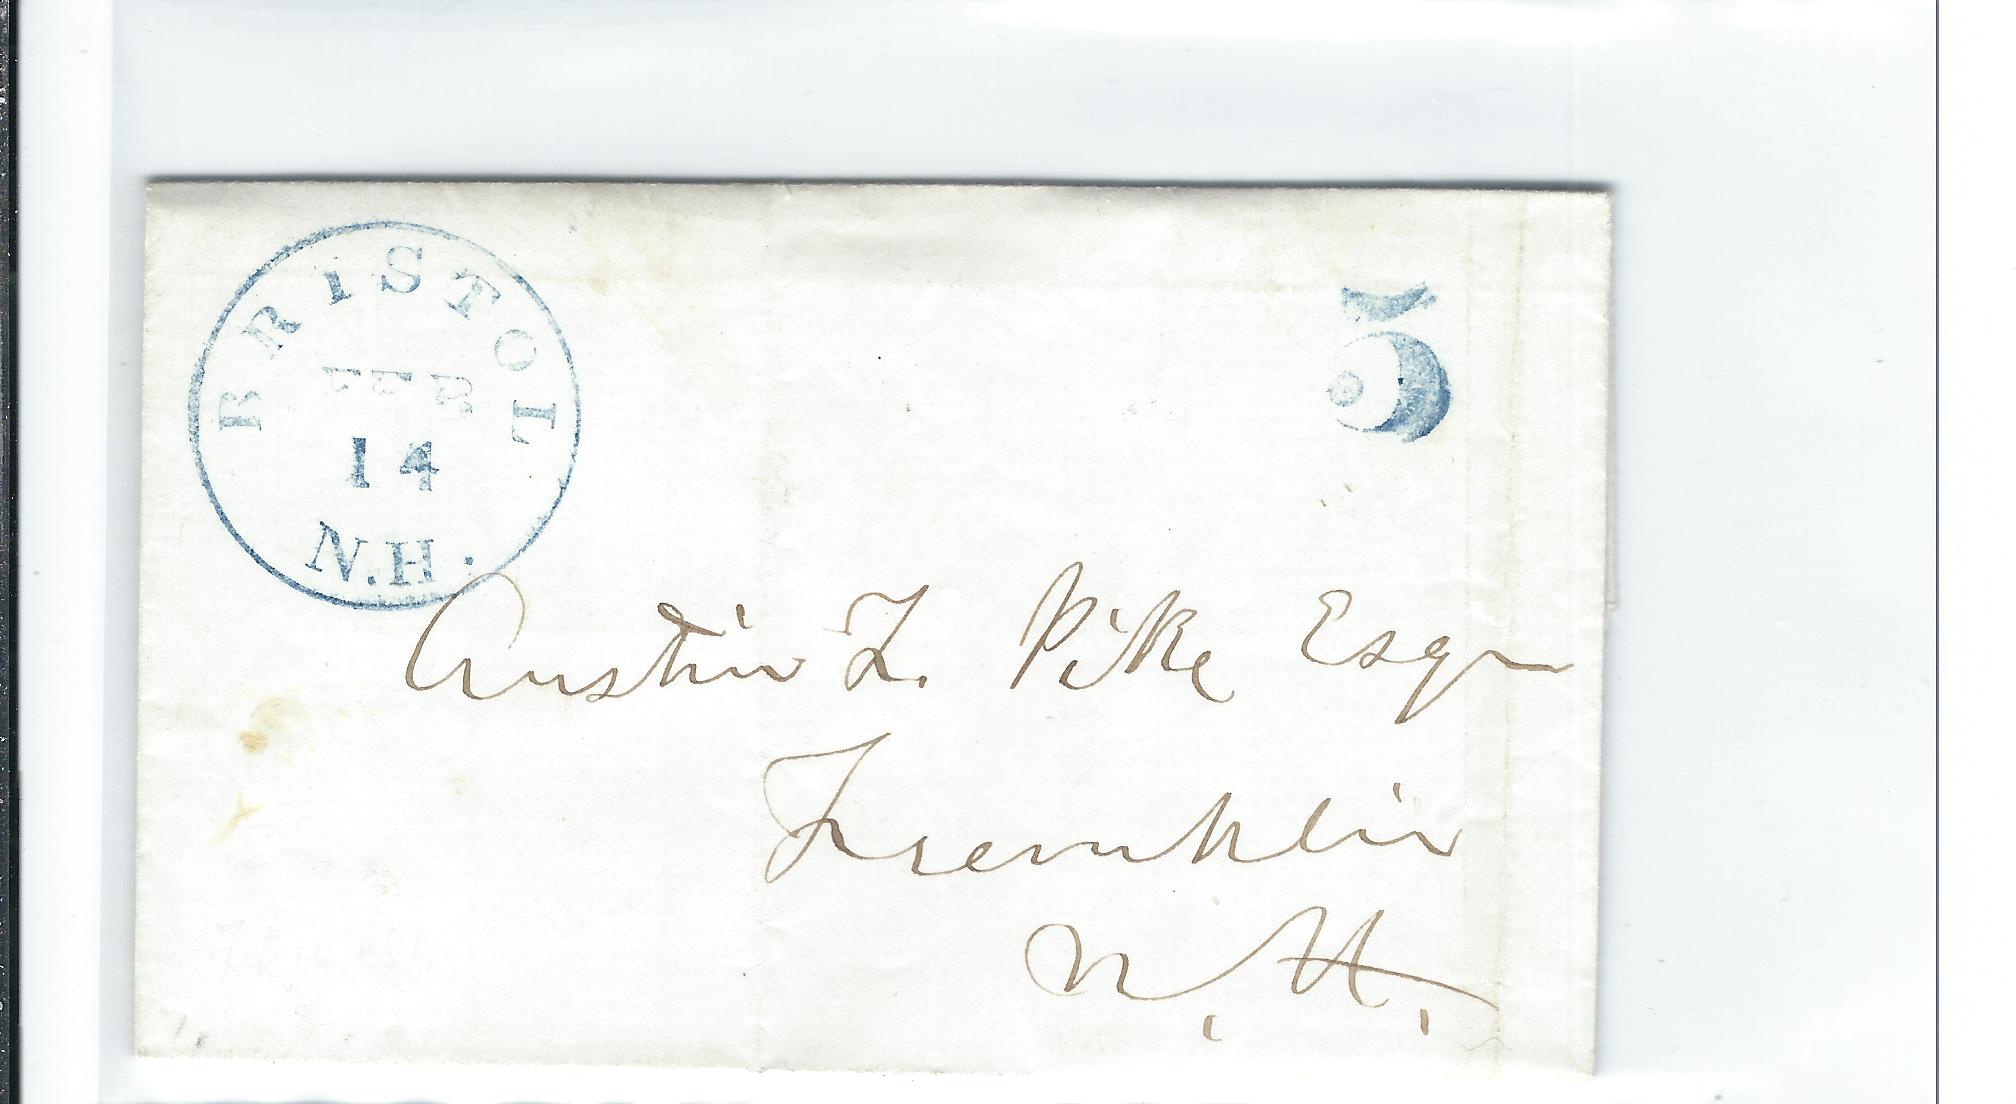 BRISTOL
FEB
14
N.H.
5
Austin F. Pike Esqr
Franklin
N.H.